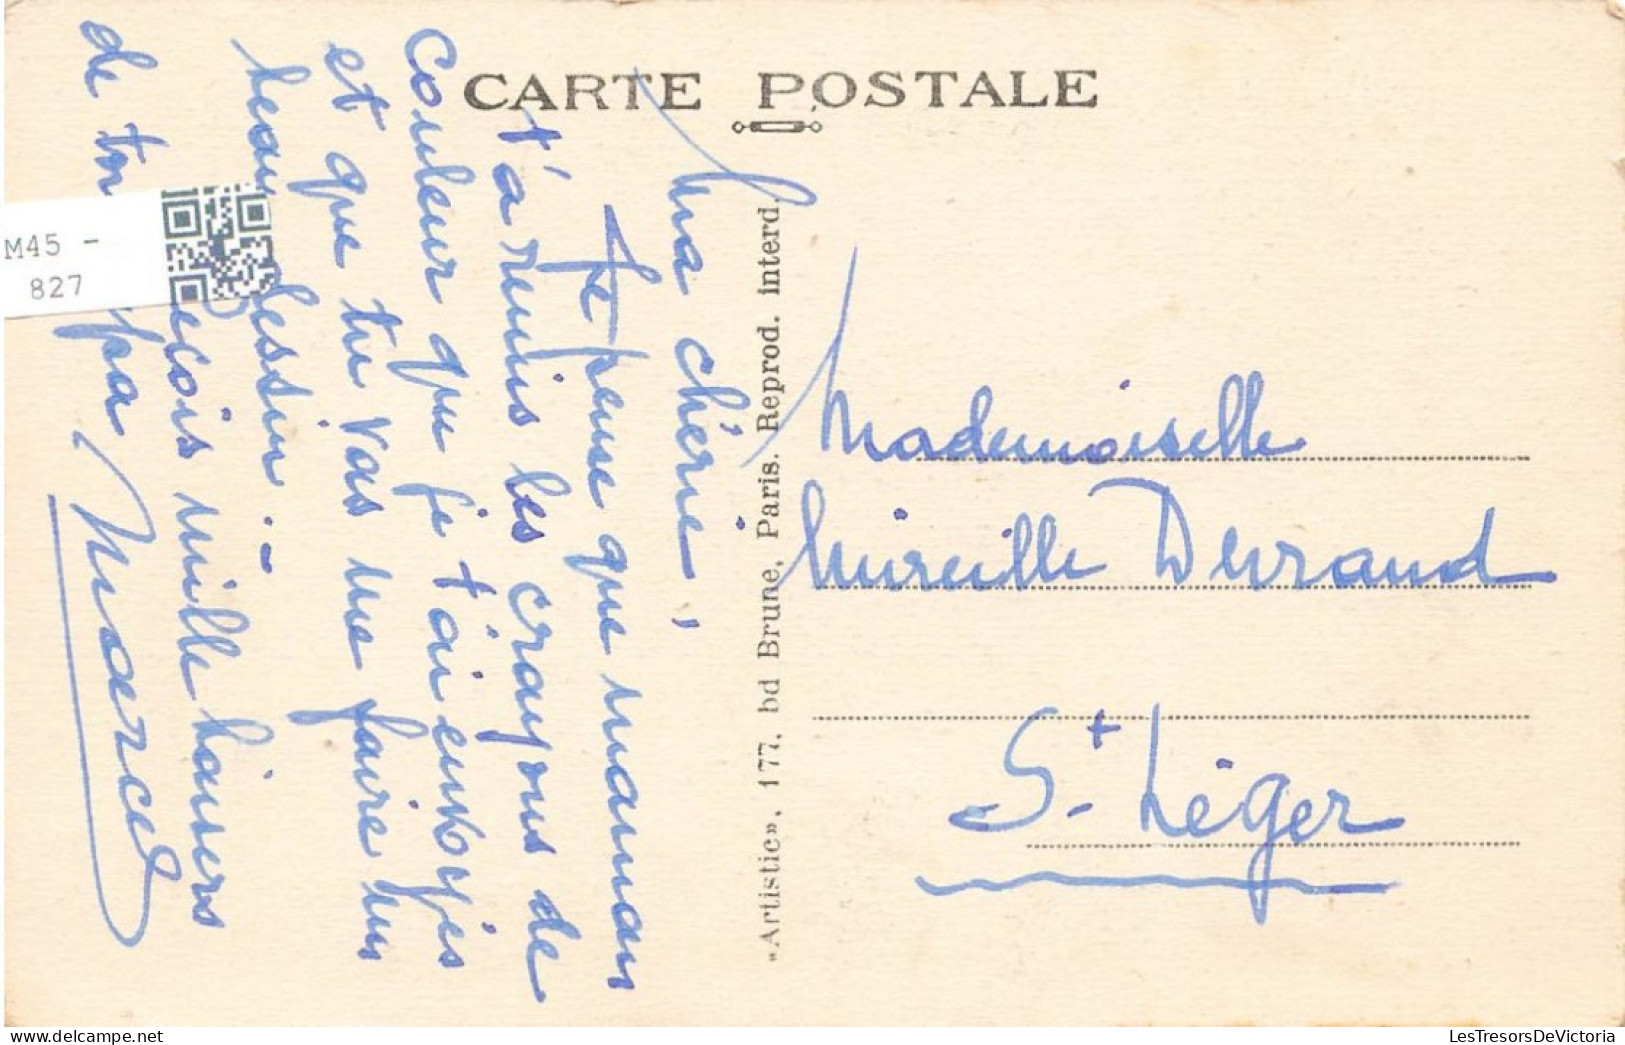 CARTE POSTALE
Ma chérie,
Je pense que maman
t'a remis les crayons de
couleur que je t'ai envoyés
et que tu vas me faire un
beau dessin. -
ecois mille baisers
de ton pa Marcel
"Artistic", 177, bd Brune, Paris. Reprod. interd.
Mademoiselle
Mireille Durand
St. Léger
M45 -
827
LesTresorsDeVictoria